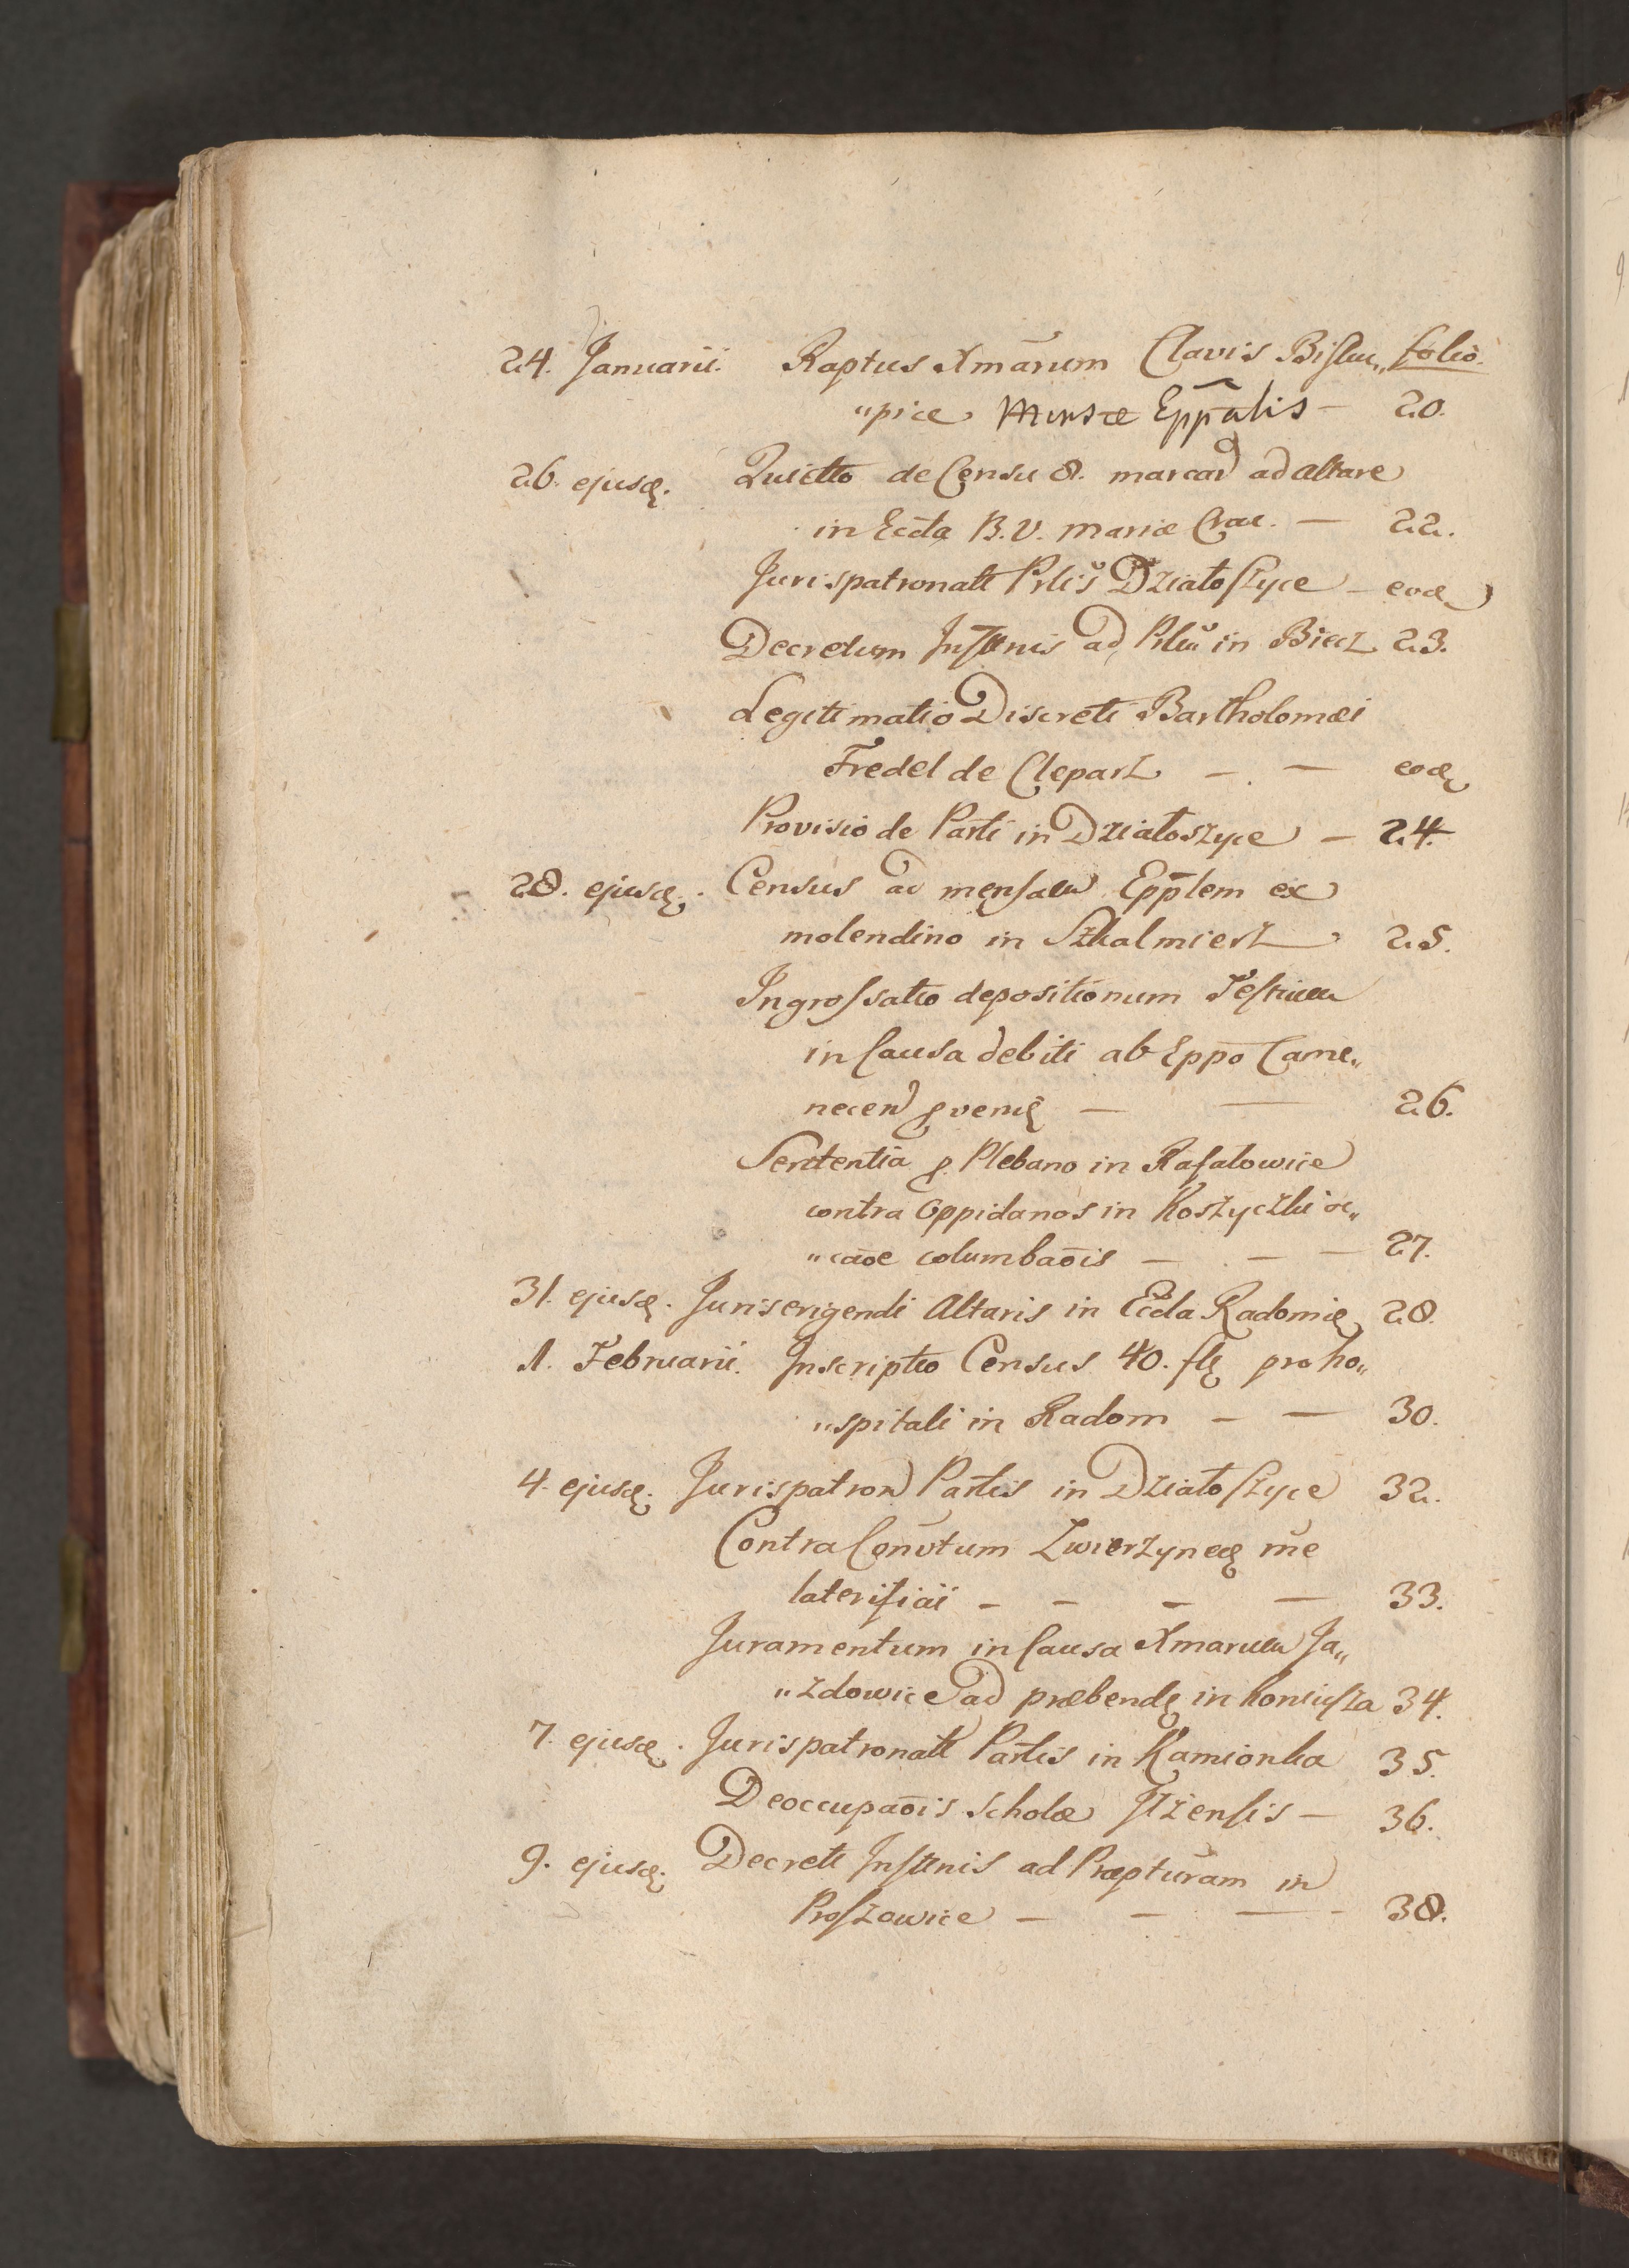 24. Januarii. Raptus Xmãrum Clavis Biſku„ folio.
„piæ Mensæ Eppãlis — 20.
26. ejusdẽ. Quietto de Censu 8. marcar̃ ad altare
in Eccla B. V. Mariæ Crac. — 22.
Jurispatronatt Prlis Działoſzyce — eodẽ
Decretum Inſttnis ad Plm̃ in Biecz 23.
Legitimatio Discreti Bartholomæi
Fredel de Cleparz — — eodẽ
Provisio de Parti in Działoszyce — 24.
28. ejusdẽ. Census ad menſam Epp̃lem ex
molendino in Szkalmierz 25.
Ingroſsatio depositionum Teſtium
in Causa debiti ab Eppo Came„
necen̄ ꝓvenię — — 26.
Sententia ꝓ Plebano in Rafałowice
contra Oppidanos in Koszyczki
„cãõe columbãõis — — — 27.
31. ejusdẽ. Juris erigendi Altaris in Eccla Radomię 28.
1. Februarii. Inscriptio Census 40. flę pro ho„
„spitali in Radom — — 30.
4. ejusdẽ. Jurispatron̄ Partis in Działoſzyce 32.
Contra Conṽtum Zwierzynecę rñe
laterifiãi — — — — 33.
Juramentum in Causa Xmarum Ja„
„zdowice ad præbendę in Koniuſza 34.
7. ejusdẽ. Jurispatronatt Partis in Kamionka 35.
Deoccupãõis Scholæ Ilzenſis — 36.
9. ejusdẽ. Decreti Inſttnis ad Præpturam in
Proſzowice — — — 38.